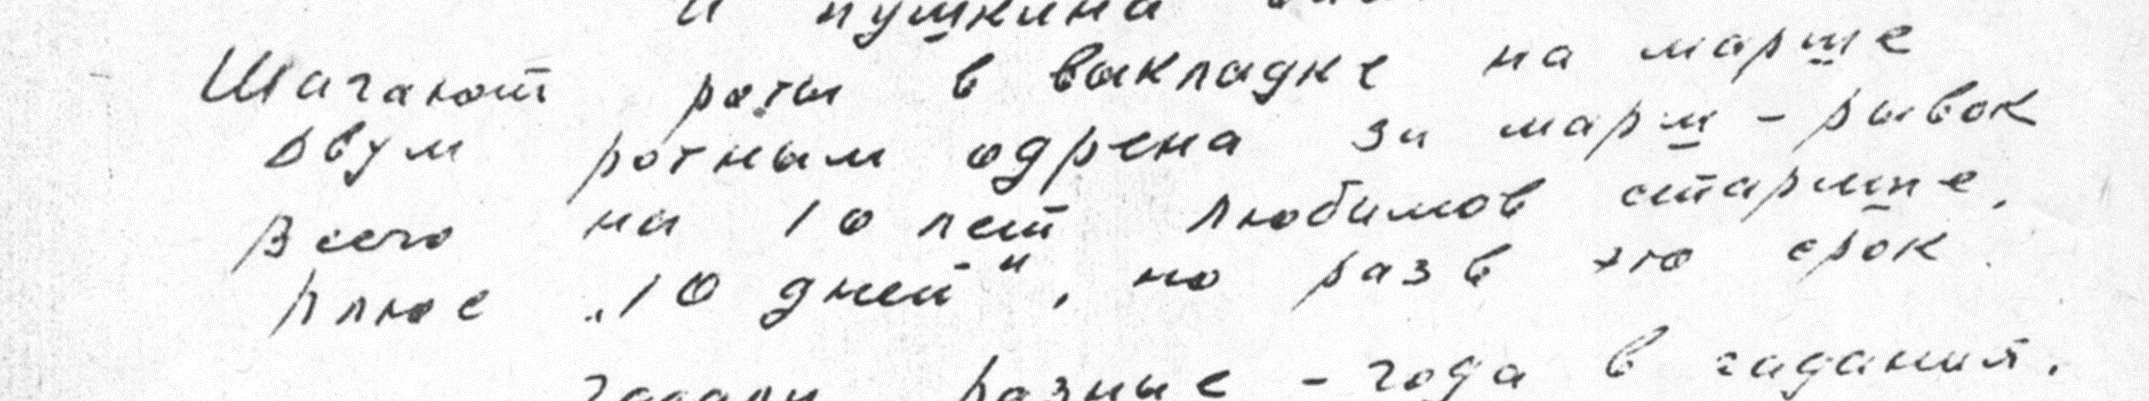 и пушкина
Шагают роты в выкладке на марше
Двум ротным ордена за марш - рывок
Всего на 10 лет Любимов старше,
Плюс „10 дней", но разв это срок
разные - года в гадания.